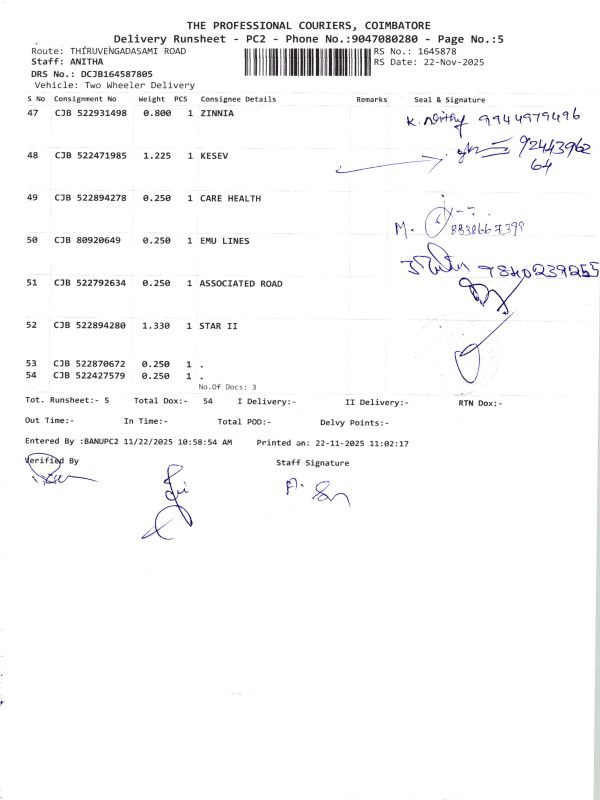 THE PROFESSIONAL COURIERS, COIMBATORE
Delivery Runsheet - PC2 - Phone No.:9047080280 - Page No.:5
Route: THIRUVENGADASAMI ROAD RS No.: 1645878
Staff: ANITHA RS Date: 22-Nov-2025
DRS No.: DCJB164587805
Vehicle: Two Wheeler Delivery
S No Consignment No Weight PCS Consignee Details Remarks Seal & Signature
47 CJB 522931498 0.800 1 ZINNIA 9944979496
48 CJB 522471985 1.225 1 KESEV 92443962
64
49 CJB 522894278 0.250 1 CARE HEALTH
M. 8838667399
50 CJB 80920649 0.250 1 EMU LINES
9840239255
51 CJB 522792634 0.250 1 ASSOCIATED ROAD
52 CJB 522894280 1.330 1 STAR II
53 CJB 522870672 0.250 1 .
54 CJB 522427579 0.250 1 .
No.Of Docs: 3
Tot. Runsheet:- 5 Total Dox:- 54 I Delivery:- II Delivery:- RTN Dox:-
Out Time:- In Time:- Total POD:- Delvy Points:-
Entered By :BANUPC2 11/22/2025 10:58:54 AM Printed on: 22-11-2025 11:02:17
Verified By Staff Signature